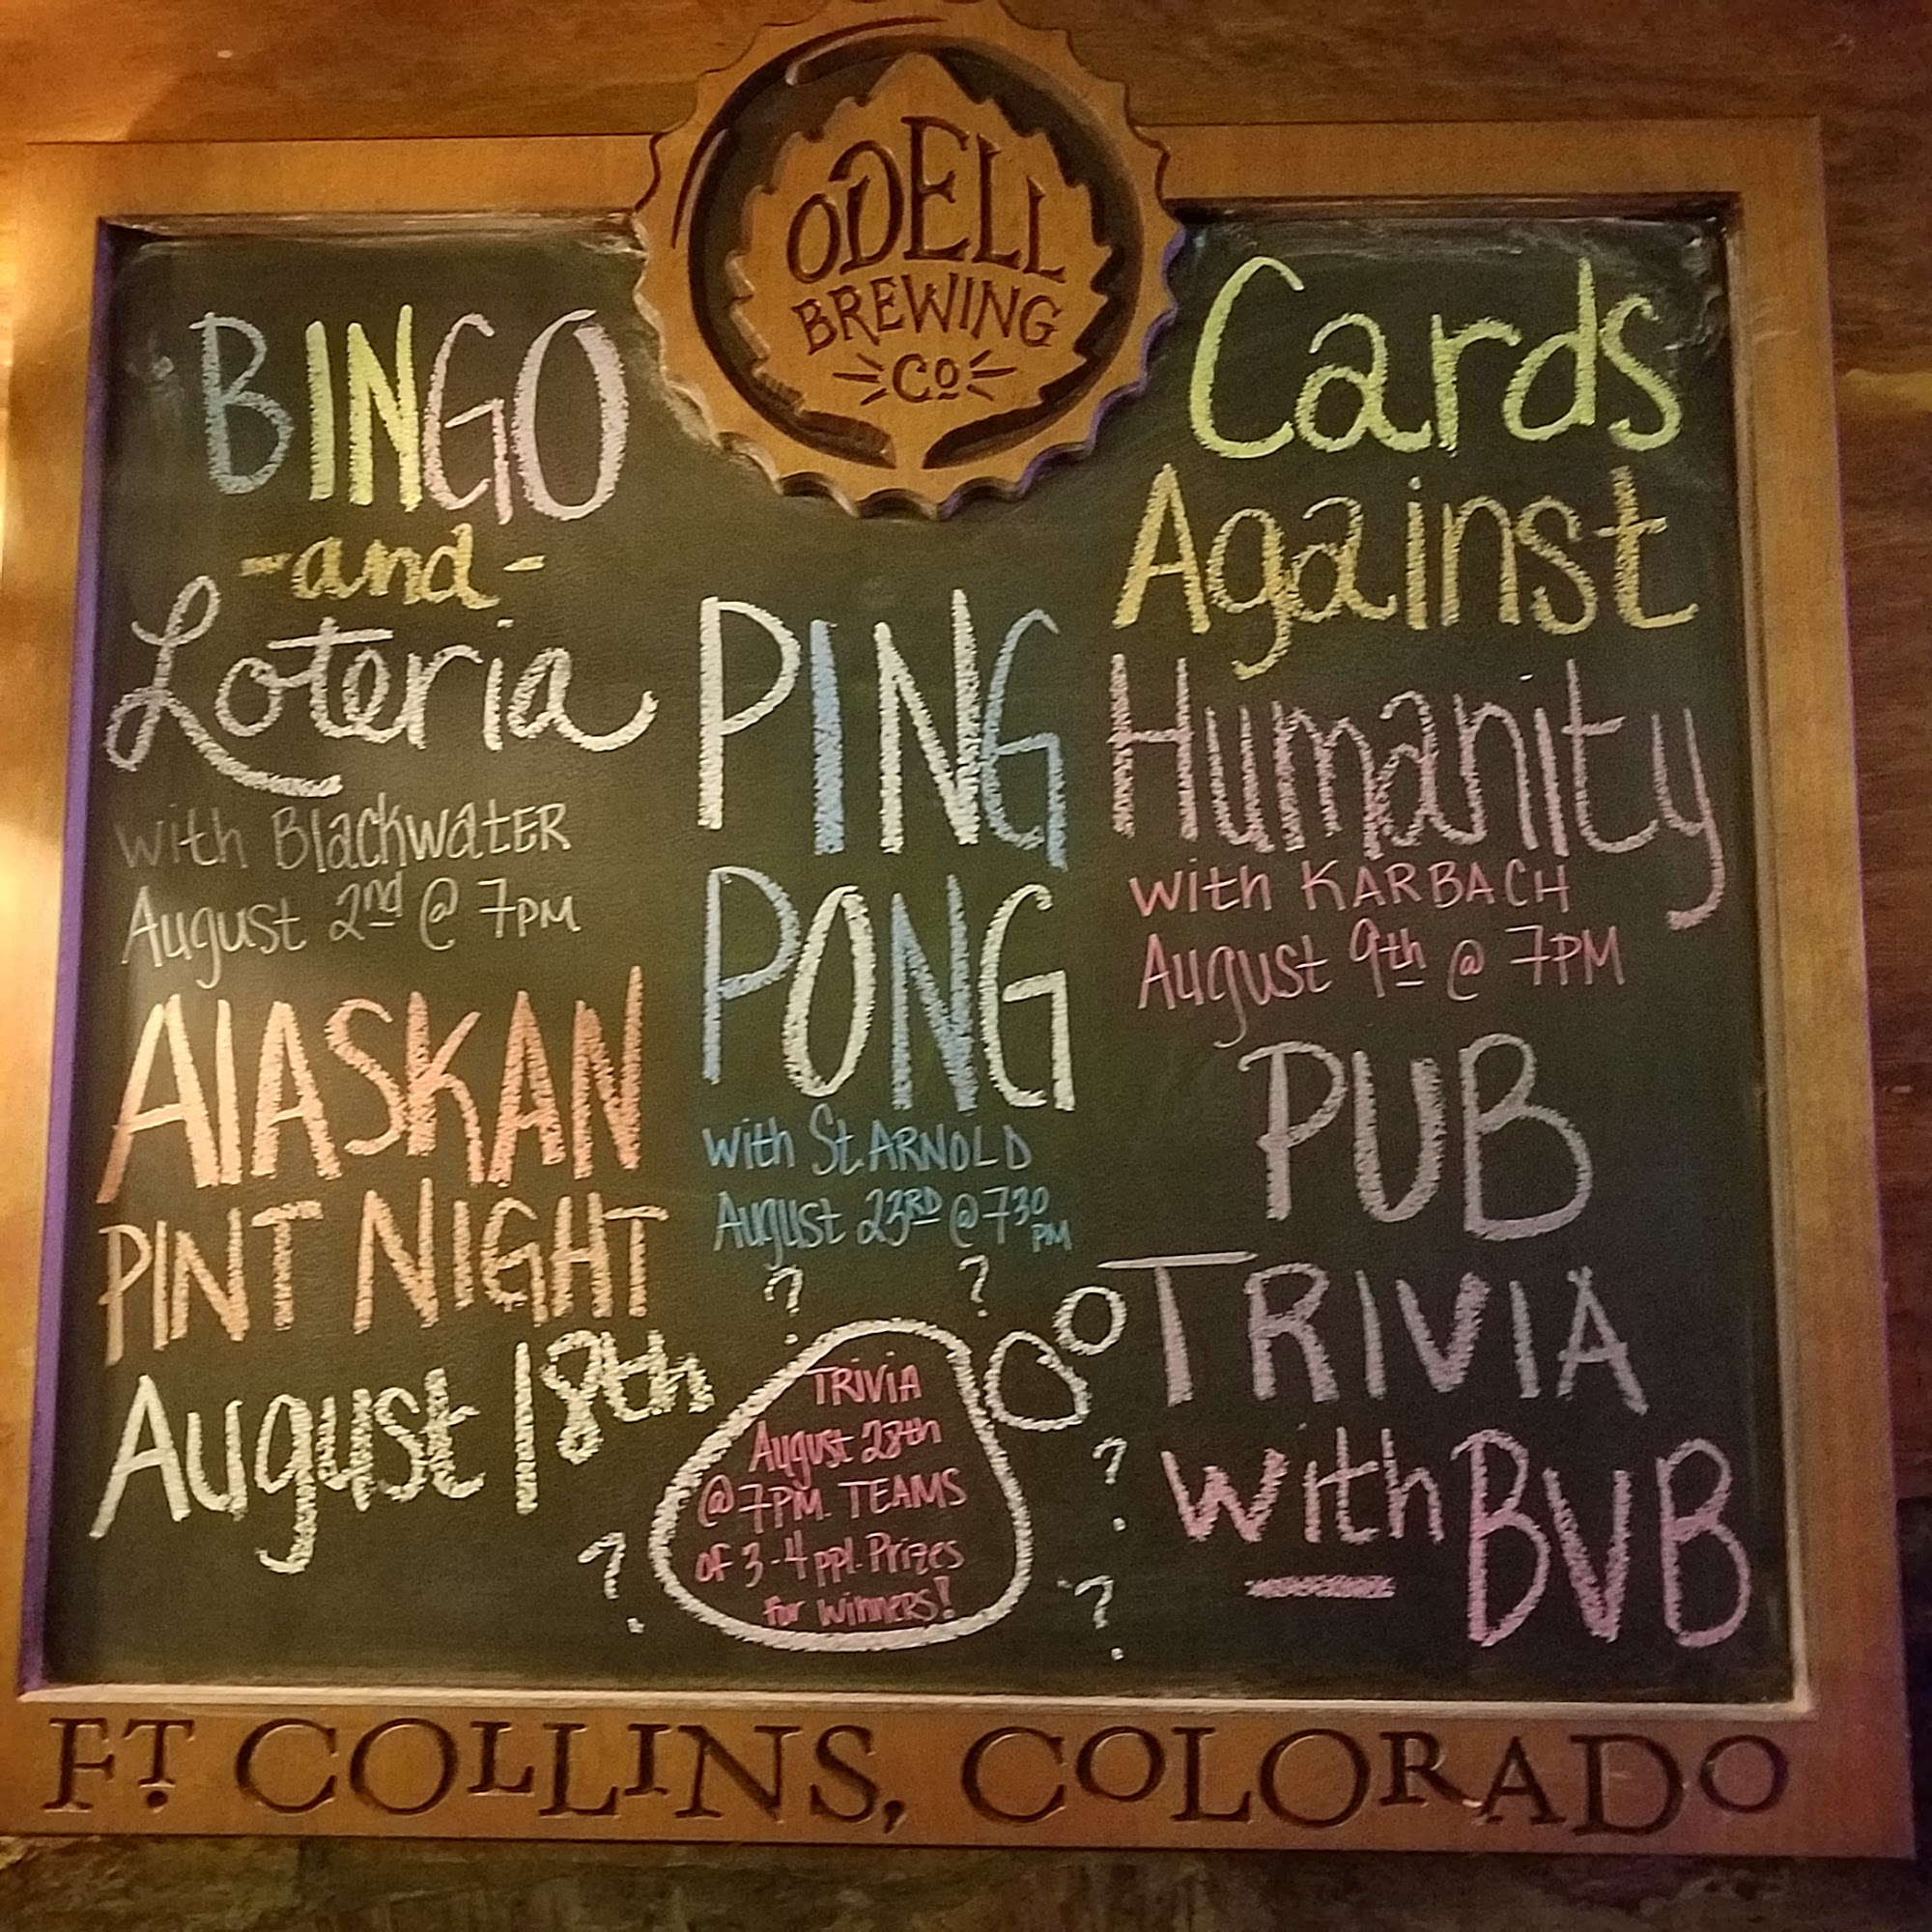 ODELL
BREWING
CO
BINGO
-and-
Loteria
with BlackwatER
August 2nd @ 7PM
AlASKAN
PINT NIGHT
August 18th
PING
PONG
with St. ARNOLD
August 23RD @ 730 PM
? ?
TRIVIA
August 28th
@ 7PM. TEAMS
of 3-4 ppl. Prizes
for WINNERS!
? ? ?
Cards
Against
Humanity
with KARBACH
August 9th @ 7PM
PUB
TRIVIA
with BVB
FT. COLLINS, COLORADO